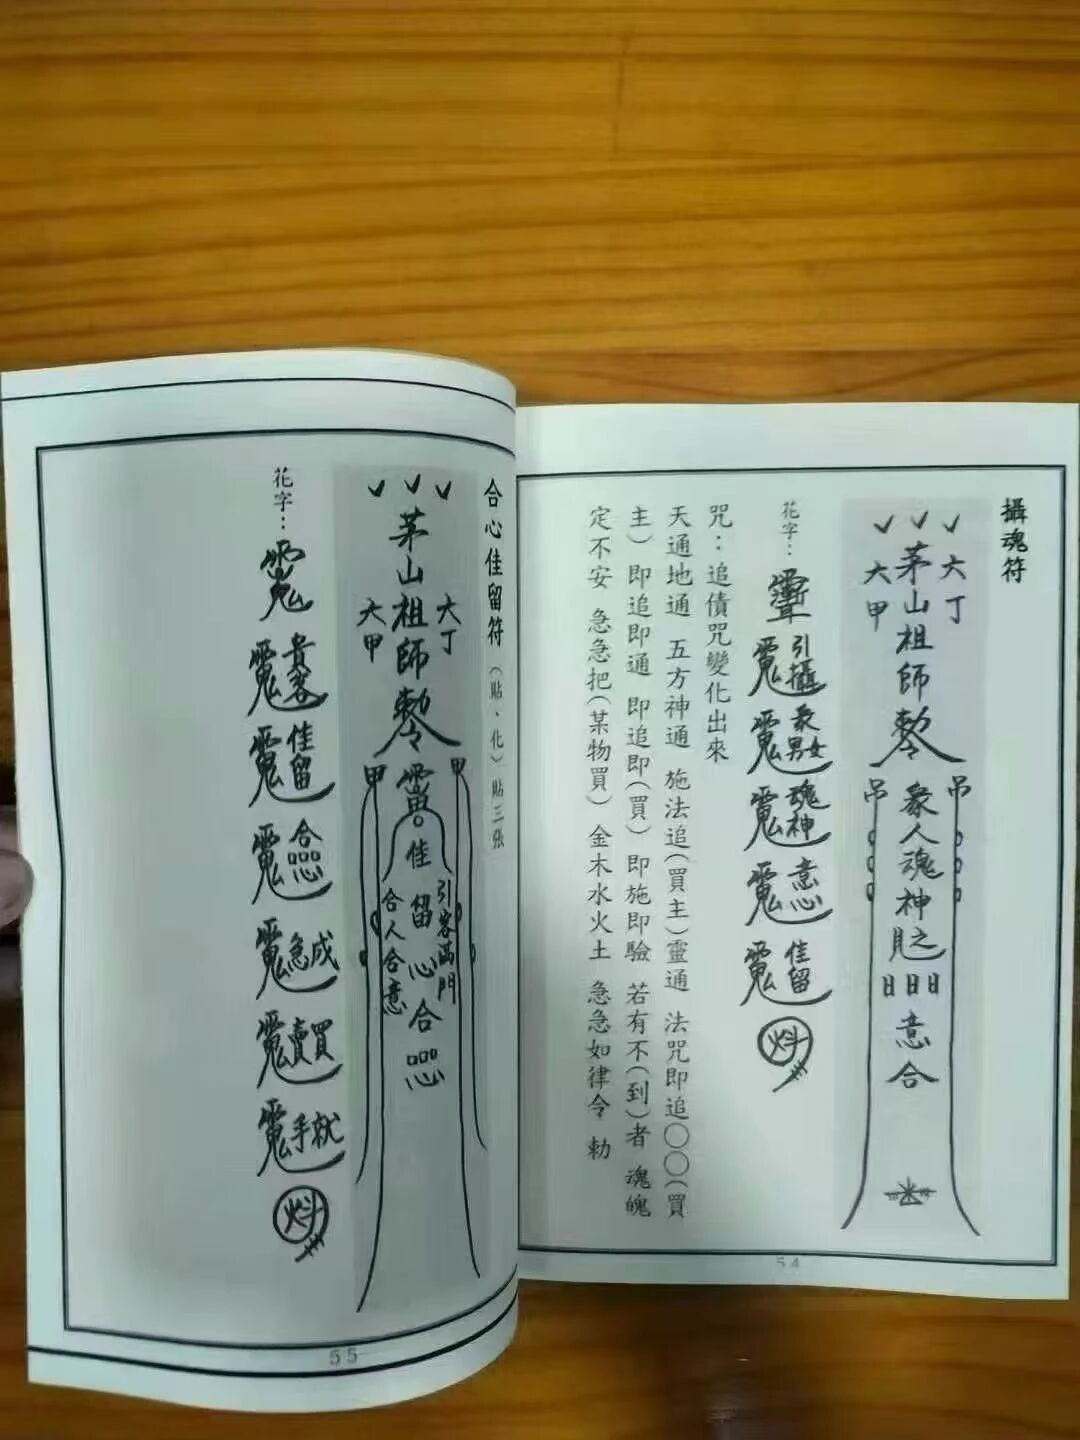 攝魂符
大丁
茅山祖師勅令
大甲
吊
衆人魂神
意合
吊
花字：
引攝
衆男女
魂神
意心
佳留
咒：追債咒變化出來
天通地通 五方神通 施法追(買主)靈通 法咒即追〇〇(買
主) 即追即通 即追即(買) 即施即驗 若有不(到)者 魂魄
定不安 急急把(某物買) 金木水火土 急急如律令 勅
54
合心佳留符(貼、化)貼三张
大丁
茅山祖師勅令
大甲
甲
甲
佳留心合
引客滿門
合人合意
花字：
貴客
佳留
合
急成
賣買
手就
55